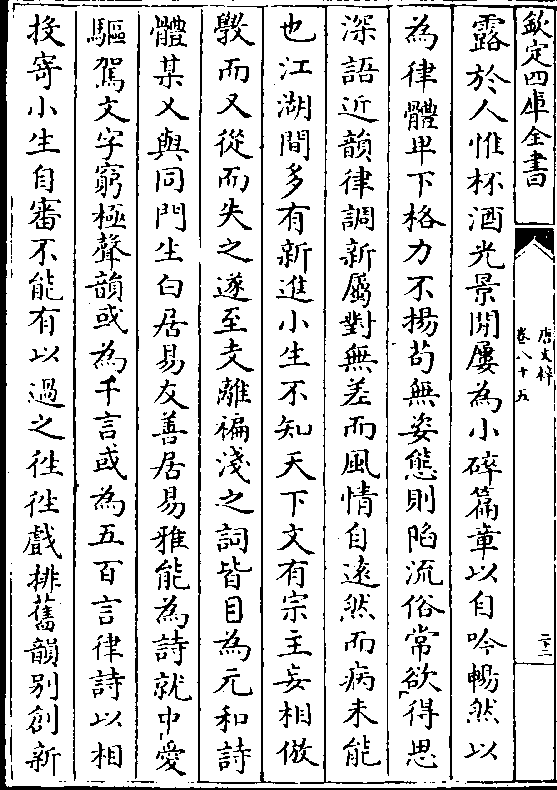 欽定四庫全書
唐文粹
卷八十五
二十二
露於人惟杯酒光景間屢為小碎篇章以自吟暢然以
為律體卑下格力不揚苟無姿態則陷流俗常欲得思
深語近韻律調新屬對無差而風情自遠然而病未能
也江湖間多有新進小生不知天下文有宗主妄相倣
斆而又從而失之遂至支離褊淺之詞皆目為元和詩
體某乂與同門生白居易友善居易雅能為詩就中愛
驅駕文字窮極聲韻或為千言或為五百言律詩以相
投寄小生自審不能有以過之徃徃戲排舊韻别創新